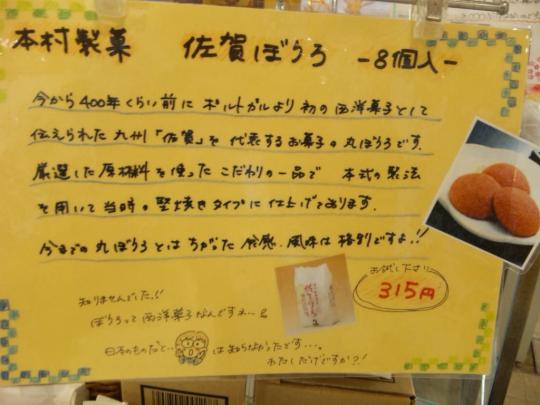 本村製菓 佐賀ぼうろ -8個入-
今から400年くらい前にポルトガルより初の西洋菓子として
伝えられた九州「佐賀」を代表するお菓子の丸ぼうろです.
厳選した原材料を使ったこだわりの一品で 本式の製法
を用いて当時の堅焼きタイプに仕上げております.
今までの丸ぼうろとはちがった食感.風味は格別ですよ!!
お試し下さい
315円
知りませんでした!!
ぼうろって西洋菓子なんですね…
日本のものだと…
は知らなかったです….
わたしだけですか?!